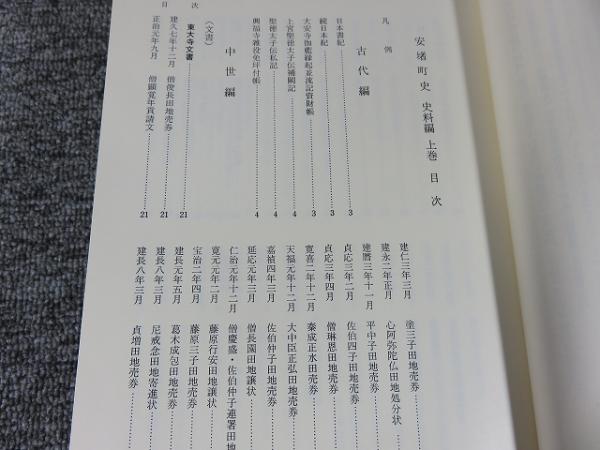 安堵町史 史料編 上巻 目次
凡例
古代編
日本書紀……3
続日本紀……3
大安寺伽藍縁起並流記資財帳……3
上宮聖徳太子伝補闕記……4
聖徳太子伝私記……4
興福寺雑役免坪付帳……4
中世編
(文書)
東大寺文書……21
建久七年十二月 僧俊長田地売券……21
正治元年九月 僧顕覚年貢請文……21
目次
建仁三年三月 塗三子田地売券
建永二年正月 心阿弥陀仏田地処分状
建暦三年十一月 平中子田地売券
貞応三年二月 佐伯四子田地売券
貞応三年四月 僧琳恩田地売券
寛喜二年十二月 秦成正水田売券
天福元年十二月 大中臣正弘田地売券
嘉禎四年三月 佐伯仲子田地売券
延応元年三月 僧長園田地譲状
仁治元年十二月 僧慶盛・佐伯仲子連署田地
寛元元年二月 藤原行安田地譲状
宝治二年四月 藤原三子田地売券
建長元年五月 葛木成包田地売券
建長八年三月 尼戒念田地寄進状
建長八年三月 貞増田地売券